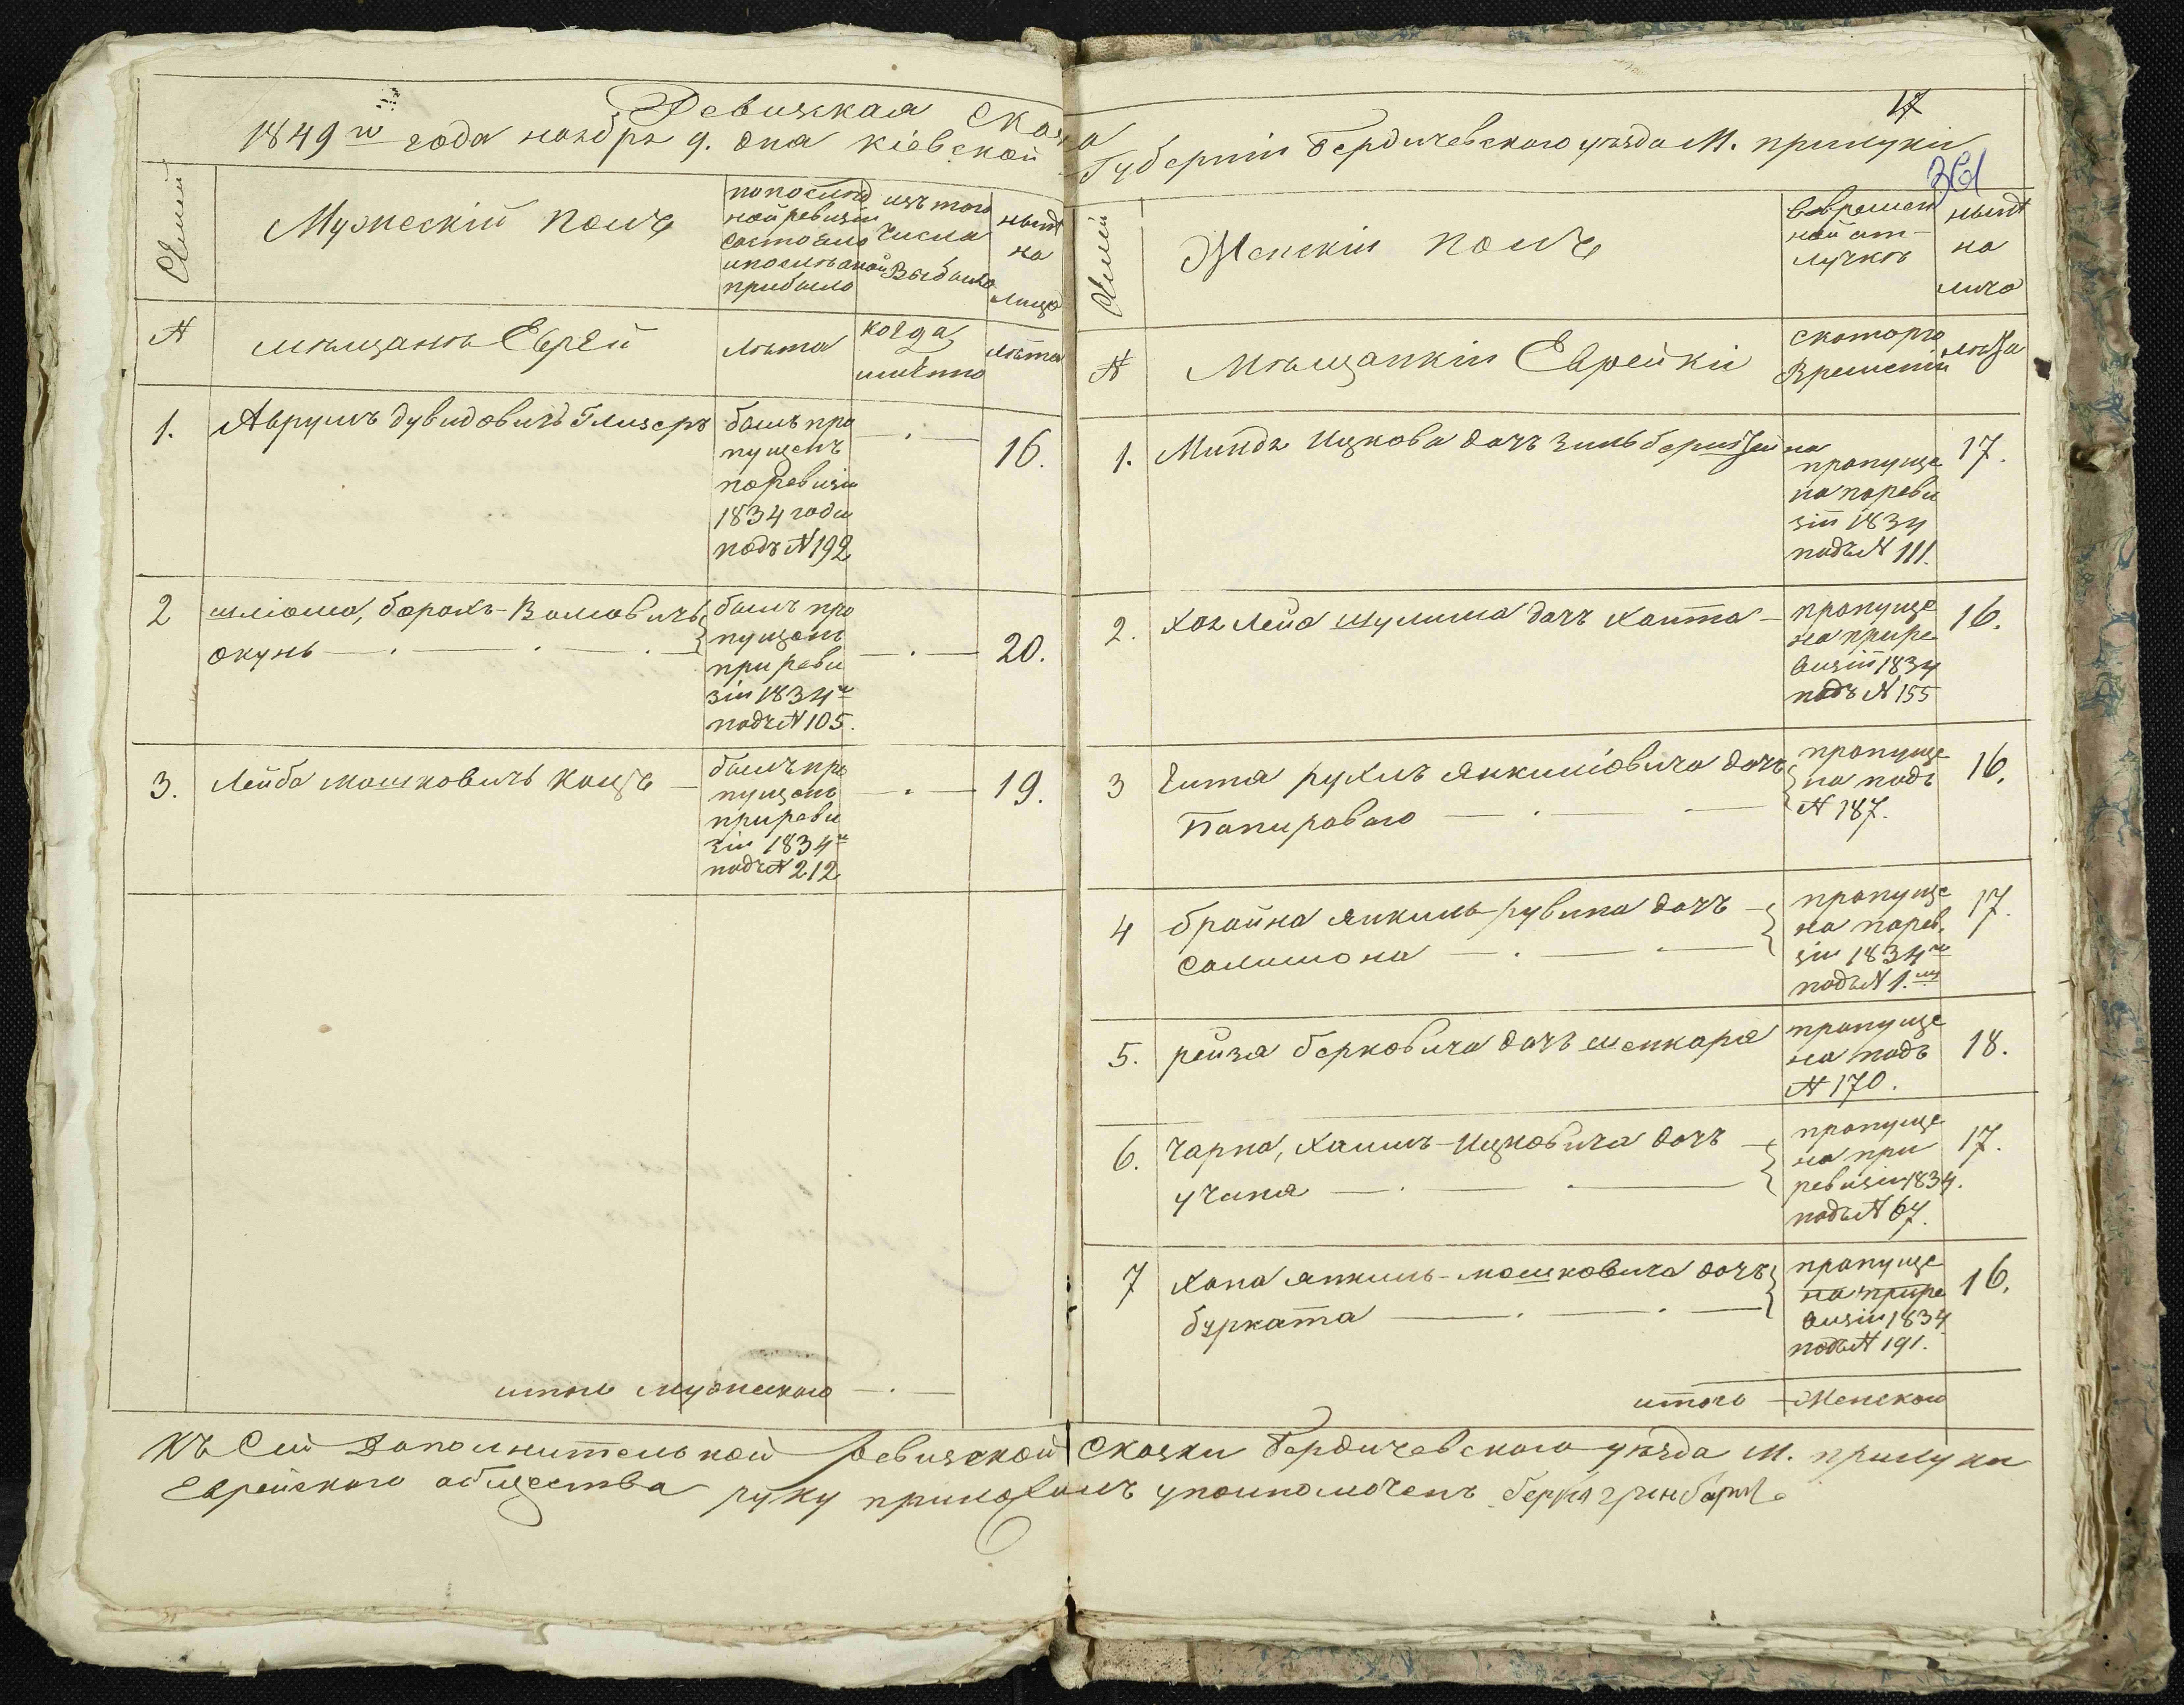 Ревизская Сказка
1849го года ноября 9. дня Кіевской Губерніи Бердичевского уезда М. прилуки
17
Семей
Мужескій полъ
по послед
ней ревизіи
состояло
и после оной
прибыло
изъ того
числа
Выбыло
ныне
на
лицо
№
мещане Еврей
лета
когда
именно
лета
1.
Аврумъ дувидовичъ Глизеръ
былъ про
пущенъ
по ревизіи
1834 года
подъ № 192
16.
2
шліома, борохъ-Волковичъ
окунь
былъ про
пущенъ
при реви
зіи 1834го
подъ № 105.
20.
3.
Лейба мошковичъ кацъ
былъ про
пущенъ
при реви
зіи 1834го
подъ № 212
19.
итого мужеского
Семей
Женскій полъ
Во времен
ной от-
лучке
ныне
на
лицо
№
Мещанкіи Еврейкі
с которого
Времени
лета
1.
Миндя Ицкова дочъ зильберштейна
пропуще
на по реви
зіи 1834
подъ № 111.
17.
2.
Хая Лейа шулима дочъ Хаита
пропуще
на при ре
визіи 1834
подъ № 155
16.
3
Гитя рухлъ Янкиліовича дочъ
Папироваго
пропуще
на подъ
№ 187.
16.
4
брайна янкиль-рувина дочъ
Солимона
пропуще
на по рев.
зіи 1834го
подъ № 1.
17.
5.
рейзя берковича дочъ шенкаря
пропуще
на подъ
№ 170.
18.
6.
Чарна, Хаимъ-Ицковича дочъ
учаня
пропуще
на при
ревизіи 1834.
подъ № 67.
17.
7
Хана янкиль-мошковича дочъ
бурката
пропуще
на при ре
визіи 1834
подъ № 191.
16.
итого Женского
Къ Сей Дополнительной Ревизской Сказки Бердичевского уезда М. прилуки
Еврейского общества руку приложилъ уполномоченъ берко гринбаргъ